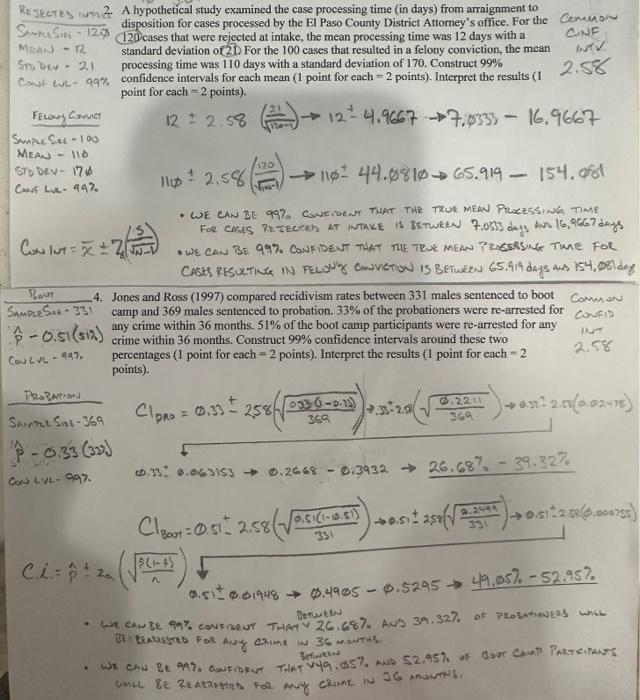 REJECTED INTAKE
SAMPLE SIZE - 120
MEAN - 12
STD DEV - 21
CONF LVL - 99%
2. A hypothetical study examined the case processing time (in days) from arraignment to
disposition for cases processed by the El Paso County District Attorney's office. For the
120 cases that were rejected at intake, the mean processing time was 12 days with a
standard deviation of 21. For the 100 cases that resulted in a felony conviction, the mean
processing time was 110 days with a standard deviation of 170. Construct 99%
confidence intervals for each mean (1 point for each = 2 points). Interpret the results (1
point for each = 2 points).
COMMON
CONF
INTV
2.58
FELONY CONVICT
SAMPLE SIZE - 100
MEAN - 110
STD DEV - 170
CONF LVL - 99%
12 ± 2.58 (21/√120-1) → 12 ± 4.9667 → 7.0333 - 16.9667
110 ± 2.58 (170/√100-1) → 110 ± 44.0810 → 65.919 - 154.081
CON INT = x̄ ± Zα (S/√N-1)
• WE CAN BE 99% CONFIDENT THAT THE TRUE MEAN PROCESSING TIME
FOR CASES REJECTED AT INTAKE IS BETWEEN 7.0333 days AND 16.9667 days
• WE CAN BE 99% CONFIDENT THAT THE TRUE MEAN PROCESSING TIME FOR
CASES RESULTING IN FELONY CONVICTION IS BETWEEN 65.919 days AND 154.081 days
BOOT
SAMPLE SIZE - 331
p̂ - 0.51 (51%)
CON LVL - 99%
4. Jones and Ross (1997) compared recidivism rates between 331 males sentenced to boot
camp and 369 males sentenced to probation. 33% of the probationers were re-arrested for
any crime within 36 months. 51% of the boot camp participants were re-arrested for any
crime within 36 months. Construct 99% confidence intervals around these two
percentages (1 point for each = 2 points). Interpret the results (1 point for each = 2
points).
COMMON
CONFID
INT
2.58
PROBATION
SAMPLE SIZE - 369
p̂ - 0.33 (33%)
CON LVL - 99%
CI PRO = 0.33 ± 2.58 (√0.33(1-0.33)/369) → .33 ± 2.58 (√0.2211/369) → 0.33 ± 2.58 (0.02478)
0.33 ± 0.063153 → 0.2668 - 0.3932 → 26.68% - 39.32%
CI BOOT = 0.51 ± 2.58 (√0.51(1-0.51)/331) → 0.51 ± 2.58 (√0.2499/331) → 0.51 ± 2.58 (0.000755)
C.I. = p̂ ± Zα (√p̂(1-p̂)/n)
0.51 ± 0.01948 → 0.4905 - 0.5295 → 49.05% - 52.95%
• WE CAN BE 99% CONFIDENT THAT BETWEEN 26.68% AND 39.32% OF PROBATIONERS WILL
BE REARRESTED FOR ANY CRIME IN 36 MONTHS.
• WE CAN BE 99% CONFIDENT THAT BETWEEN 49.05% AND 52.95% OF BOOT CAMP PARTICIPANTS
WILL BE REARRESTED FOR ANY CRIME IN 36 MONTHS.